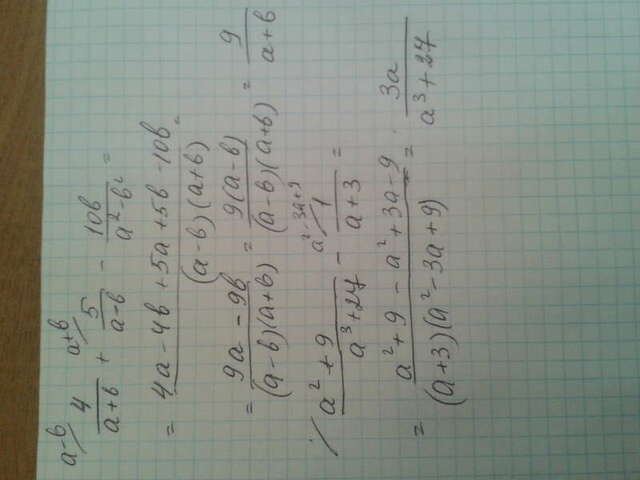 a-b/ 4/(a+b) + a+b/ 5/(a-b) - 10b/(a²-b²) =
= (4a - 4b + 5a + 5b - 10b)/((a-b)(a+b)) =
= (9a - 9b)/((a-b)(a+b)) = 9(a-b)/((a-b)(a+b)) = 9/(a+b)
(a² + 9)/(a³ + 27) - a²-3a+9/ 1/(a+3) =
= (a² + 9 - a² + 3a - 9)/((a+3)(a² - 3a + 9)) = 3a/(a³ + 27)